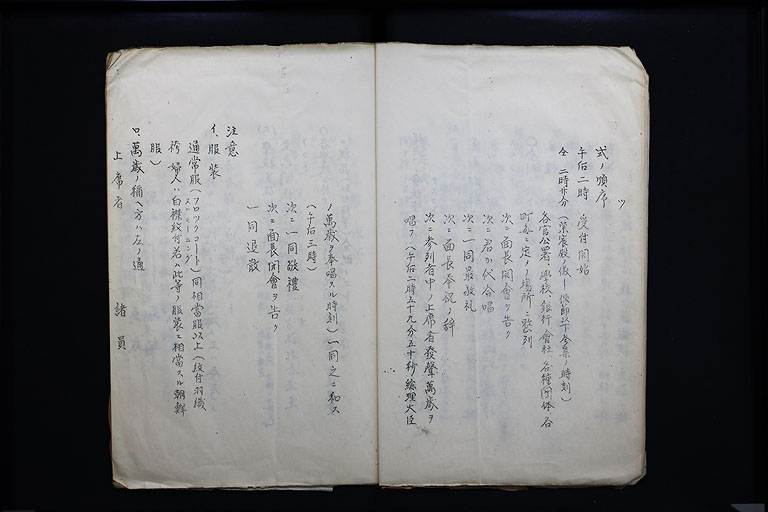 ツ
式ノ順序
午后二時　受付開始
仝　二時廿分（紫宸殿ノ儀ー
各官公署、學校、銀行會社、各種團体、各
町每ニ定メノ場所ニ整列
次ニ面長開會ヲ告ク
次ニ君が代合唱
次ニ一同最敬礼
次ニ面長奉祝ノ辞
次ニ參列者中ノ上席者發聲萬歳ヲ
唱フ（午后二時五十九分五十秒總理大臣
ノ萬歳ヲ奉唱スル時刻）一同之ニ和ス
（午后三時）
次ニ一同敬禮
次ニ面長閉會ヲ告ク
一同退散
注意
イ、服裝
通常服（フロックコート モーニング）同相當服以上（紋付羽織
袴、婦人ハ白襟紋付若ハ此等ノ服裝ニ相當スル朝鮮
服）
ロ、萬歳ノ稱ヘ方ハ左ノ通
上席者　諸員